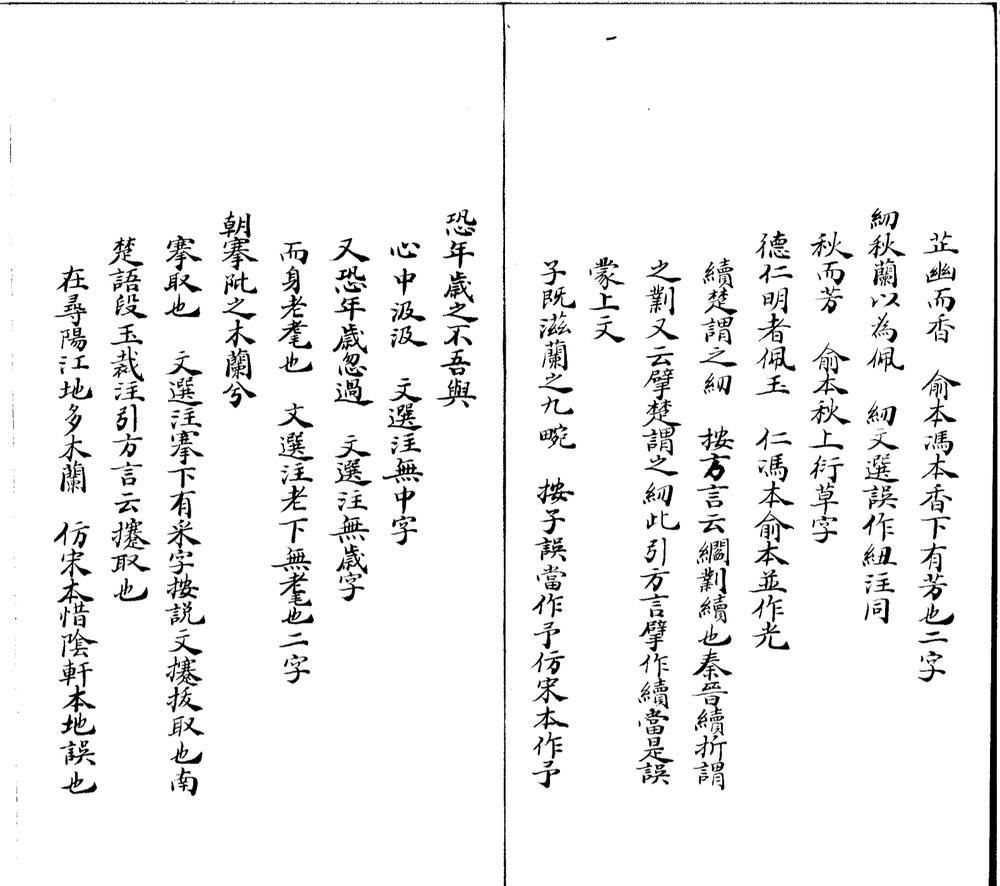 芷幽而香　俞本馮本香下有芳也二字
紉秋蘭以為佩　紉文選誤作紐注同
秋而芳　俞本秋上衍草字
德仁明者佩玉　仁馮本俞本並作光
續楚謂之紉　按方言云繝剿續也秦晉續折謂
之剿又云擘楚謂之紉此引方言擘作續當是誤
蒙上文
子既滋蘭之九畹　按子誤當作予仿宋本作予
恐年歲之不吾與
心中汲汲　文選注無中字
又恐年歲忽過　文選注無歲字
而身老耄也　文選注老下無耄也二字
朝搴阰之木蘭兮
搴取也　文選注搴下有采字按説文攓拔取也南
楚語段玉裁注引方言云攓取也
在尋陽江地多木蘭　仿宋本惜陰軒本地誤也